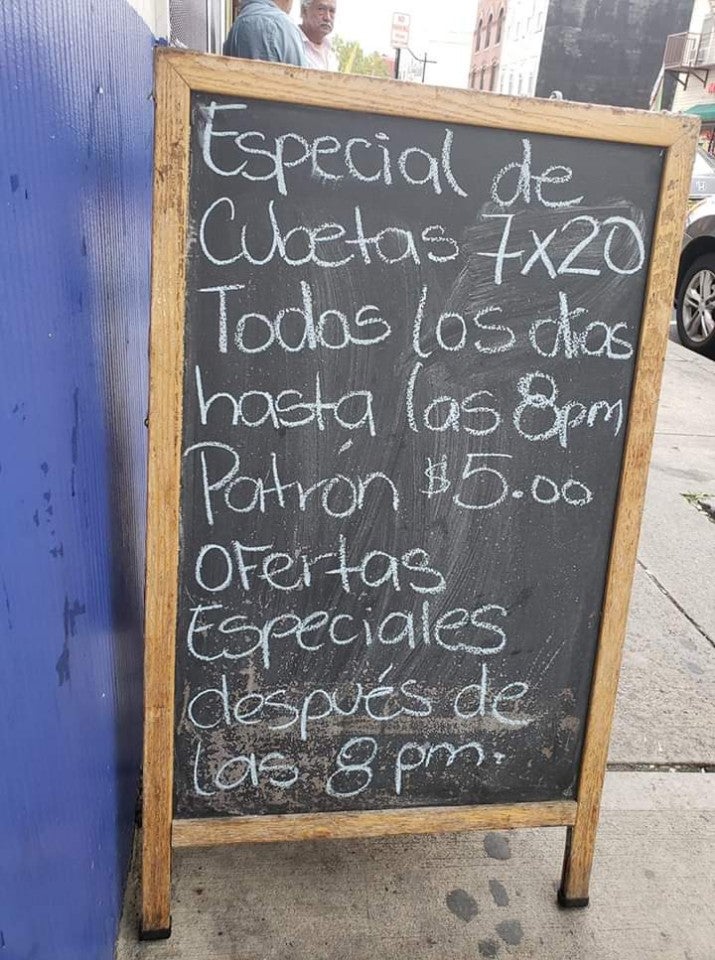 Especial de
Cubetas 7x20
Todos los días
hasta las 8pm
Patrón $5.00
OFertas
Especiales
después de
las 8 pm.